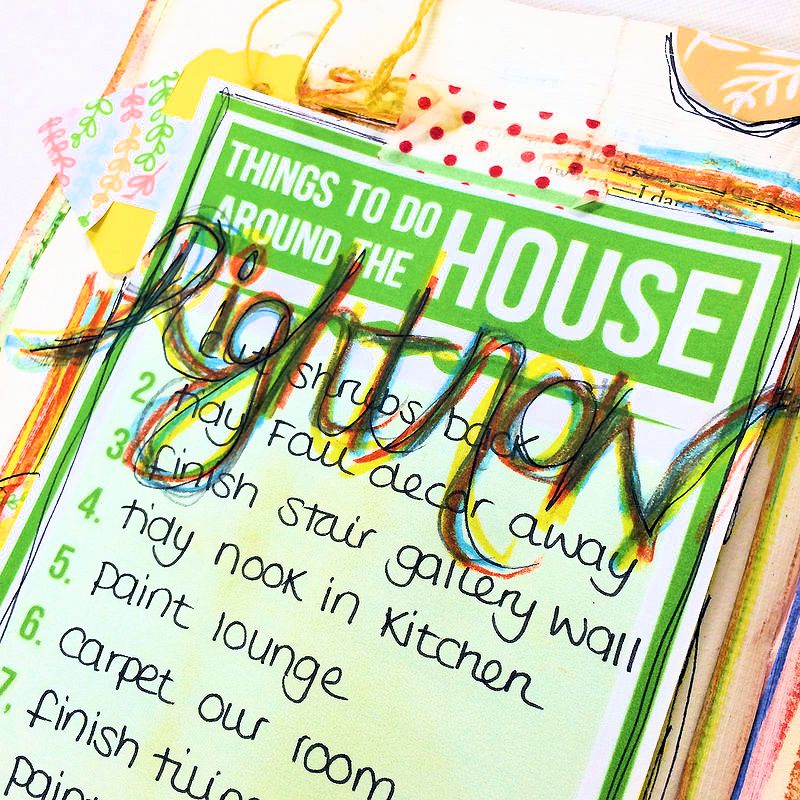 I dare
THINGS TO DO
AROUND THE
HOUSE
Right now
shrubs back
2. tidy Fall decor away
3. finish stair gallery wall
4. tidy nook in kitchen
5. paint lounge
6. carpet our room
7. finish